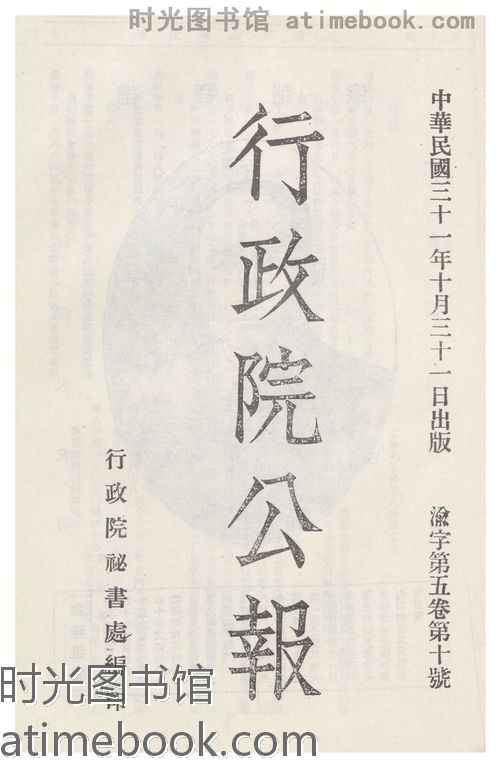 时光图书馆 atimebook.com
中華民國三十一年十月三十一日出版 渝字第五卷第十號
行政院公報
行政院祕書處編
时光图书馆
atimebook.com